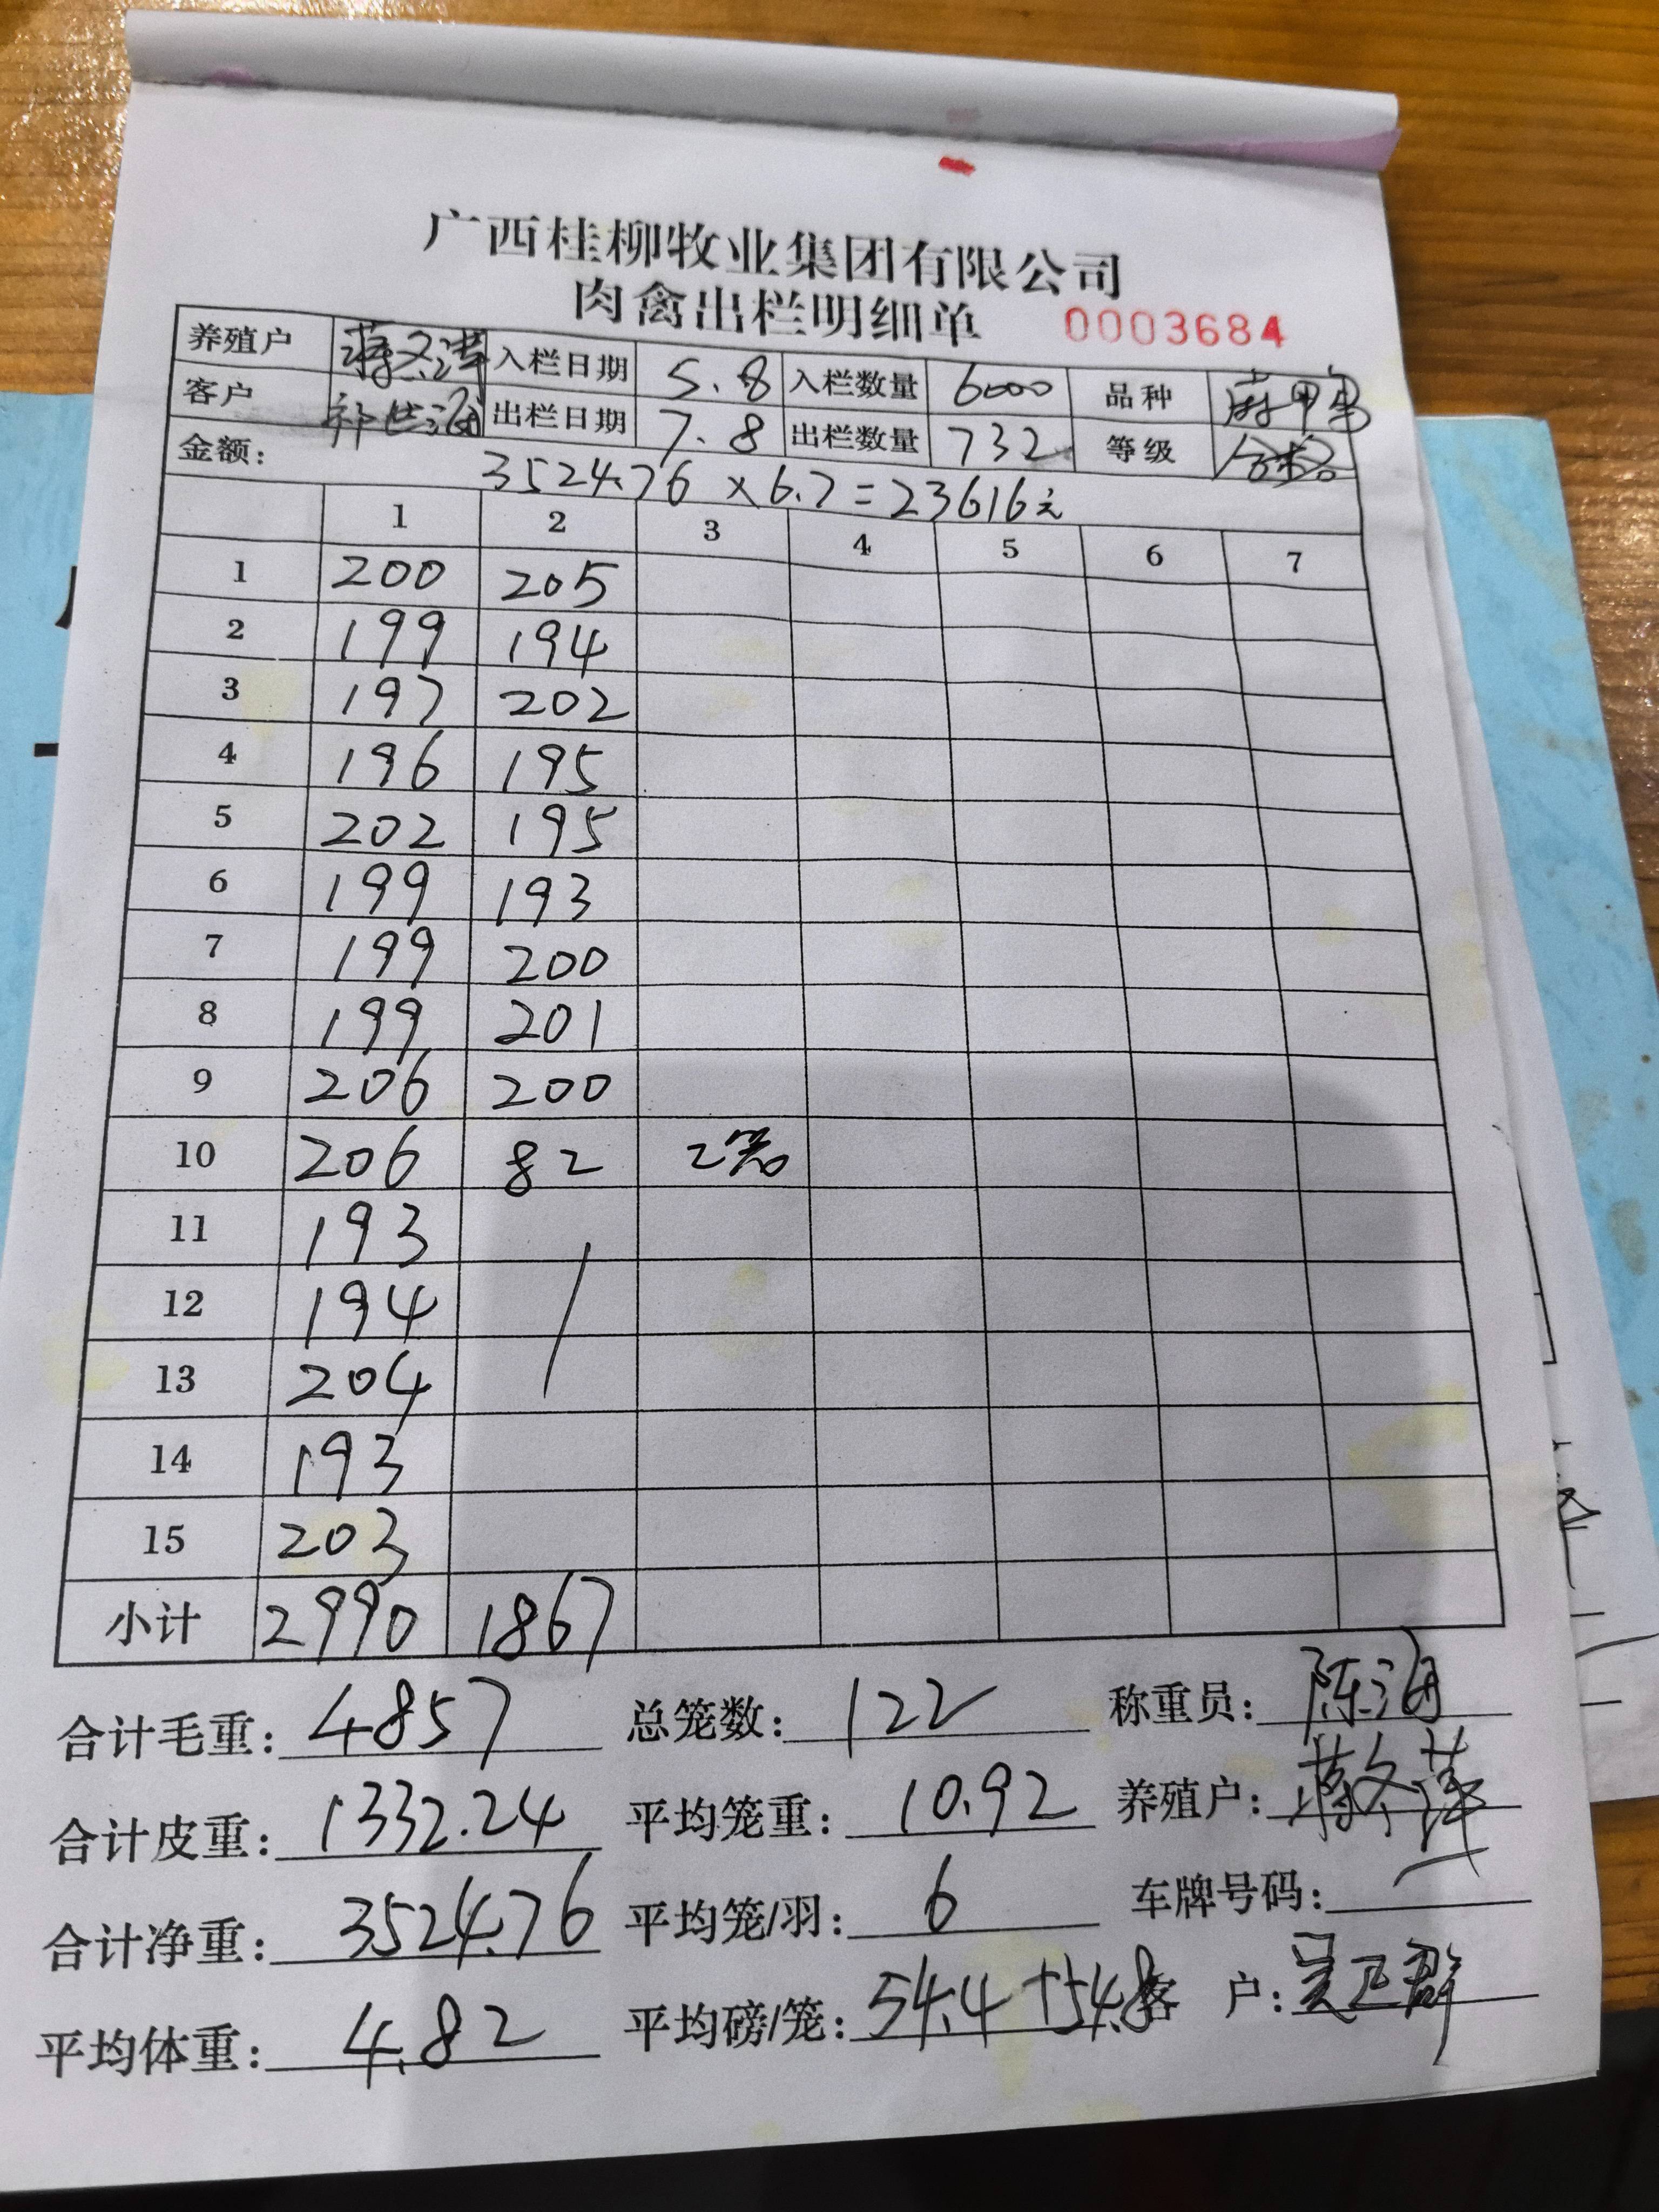 广西桂柳牧业集团有限公司
肉禽出栏明细单 0003684
养殖户 入栏日期 5.8 入栏数量 6000 品种 麻鸭
客户 出栏日期 7.8 出栏数量 732 等级 合格
金额: 3524.76 × 6.7 = 23616元
1 2 3 4 5 6 7
1 200 205
2 199 194
3 197 202
4 196 195
5 202 195
6 199 193
7 199 200
8 199 201
9 206 200
10 206 82 2笼
11 193
12 194
13 204
14 193
15 203
小计 2990 1867
合计毛重: 4857 总笼数: 122 称重员: 陈海
合计皮重: 1332.24 平均笼重: 10.92 养殖户:
合计净重: 3524.76 平均笼/羽: 6 车牌号码:
平均体重: 4.82 平均磅/笼: 54.4+54.8 客 户: 吴卫群